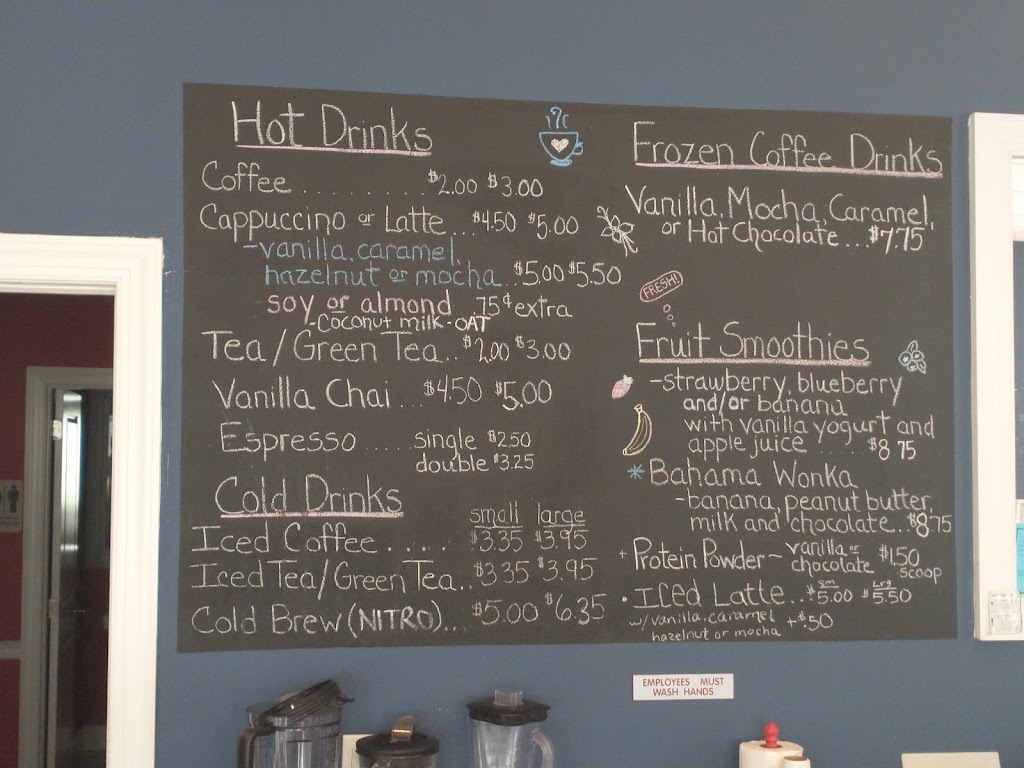 Hot Drinks
Coffee ............ $2.00 $3.00
Cappuccino or Latte...$4.50 $5.00
-vanilla, caramel,
hazelnut or mocha..$5.00 $5.50
soy or almond 75¢ extra
-Coconut milk - OAT
Tea/Green Tea..$2.00 $3.00
Vanilla Chai ... $4.50 $5.00
Espresso ...... single $2.50
double $3.25
Cold Drinks
small large
Iced Coffee ..... $3.35 $3.95
Iced Tea/Green Tea..$3.35 $3.95
Cold Brew (NITRO)...$5.00 $6.35
Frozen Coffee Drinks
Vanilla, Mocha, Caramel,
or Hot Chocolate....$7.75
FRESH!
Fruit Smoothies
-strawberry, blueberry
and/or banana
with vanilla yogurt and
apple juice ....... $8.75
* Bahama Wonka
-banana, peanut butter,
milk and chocolate... $8.75
+ Protein Powder - vanilla or
chocolate $1.50
scoop
sm Lrg
• Iced Latte...$5.00 $5.50
w/vanilla, caramel +$.50
hazelnut or mocha
EMPLOYEES MUST
WASH HANDS